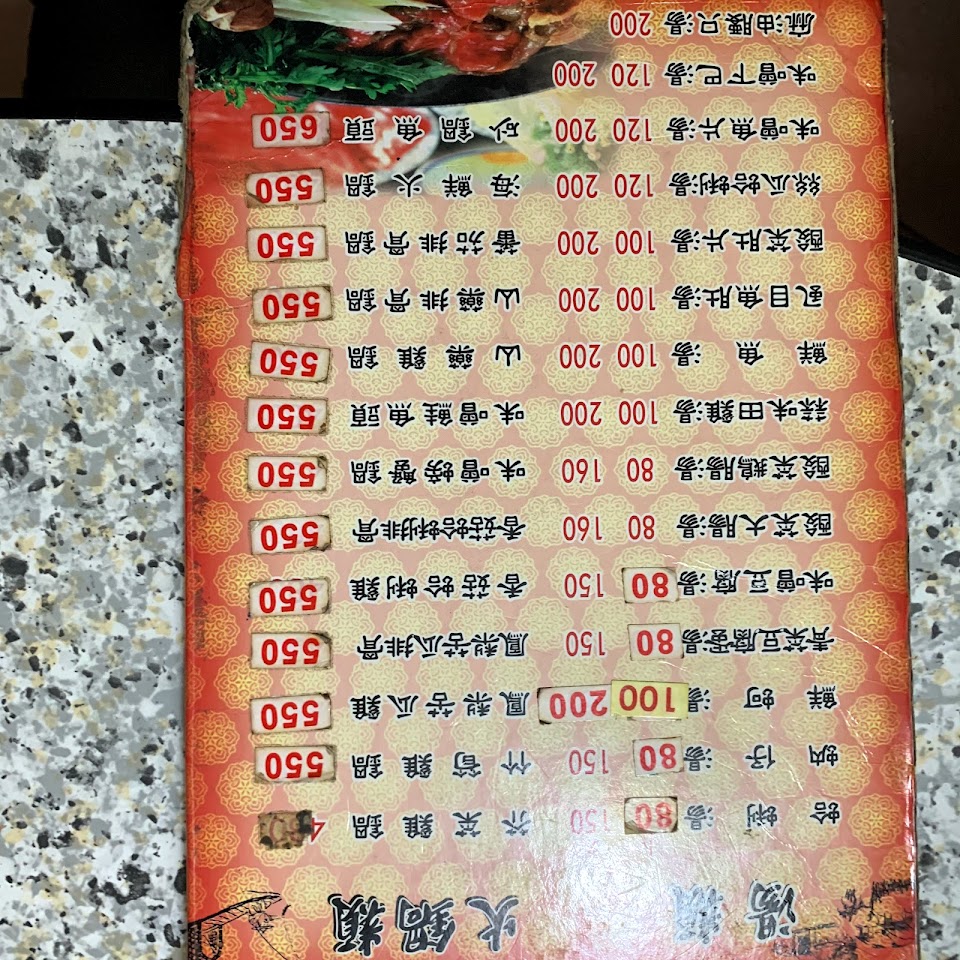 湯類 火鍋類
蛤蜊湯 80 150 芥菜雞鍋 4
蚋仔湯 80 150 竹筍雞鍋 550
鮮蚵湯 100 200 鳳梨苦瓜雞 550
青菜豆腐蛋湯 80 150 鳳梨苦瓜排骨 550
味噌豆腐湯 80 150 香菇蛤蜊雞 550
酸菜大腸湯 80 160 香菇蛤蜊排骨 550
酸菜鵝腸湯 80 160 味噌螃蟹鍋 550
蒜味田雞湯 100 200 味噌鮭魚頭 550
鮮魚湯 100 200 山藥雞鍋 550
虱目魚肚湯 100 200 山藥排骨鍋 550
酸菜肚片湯 100 200 蕃茄排骨鍋 550
絲瓜蛤蜊湯 120 200 海鮮火鍋 550
味噌魚片湯 120 200 砂鍋魚頭 650
味噌下巴湯 120 200
麻油腰只湯 200